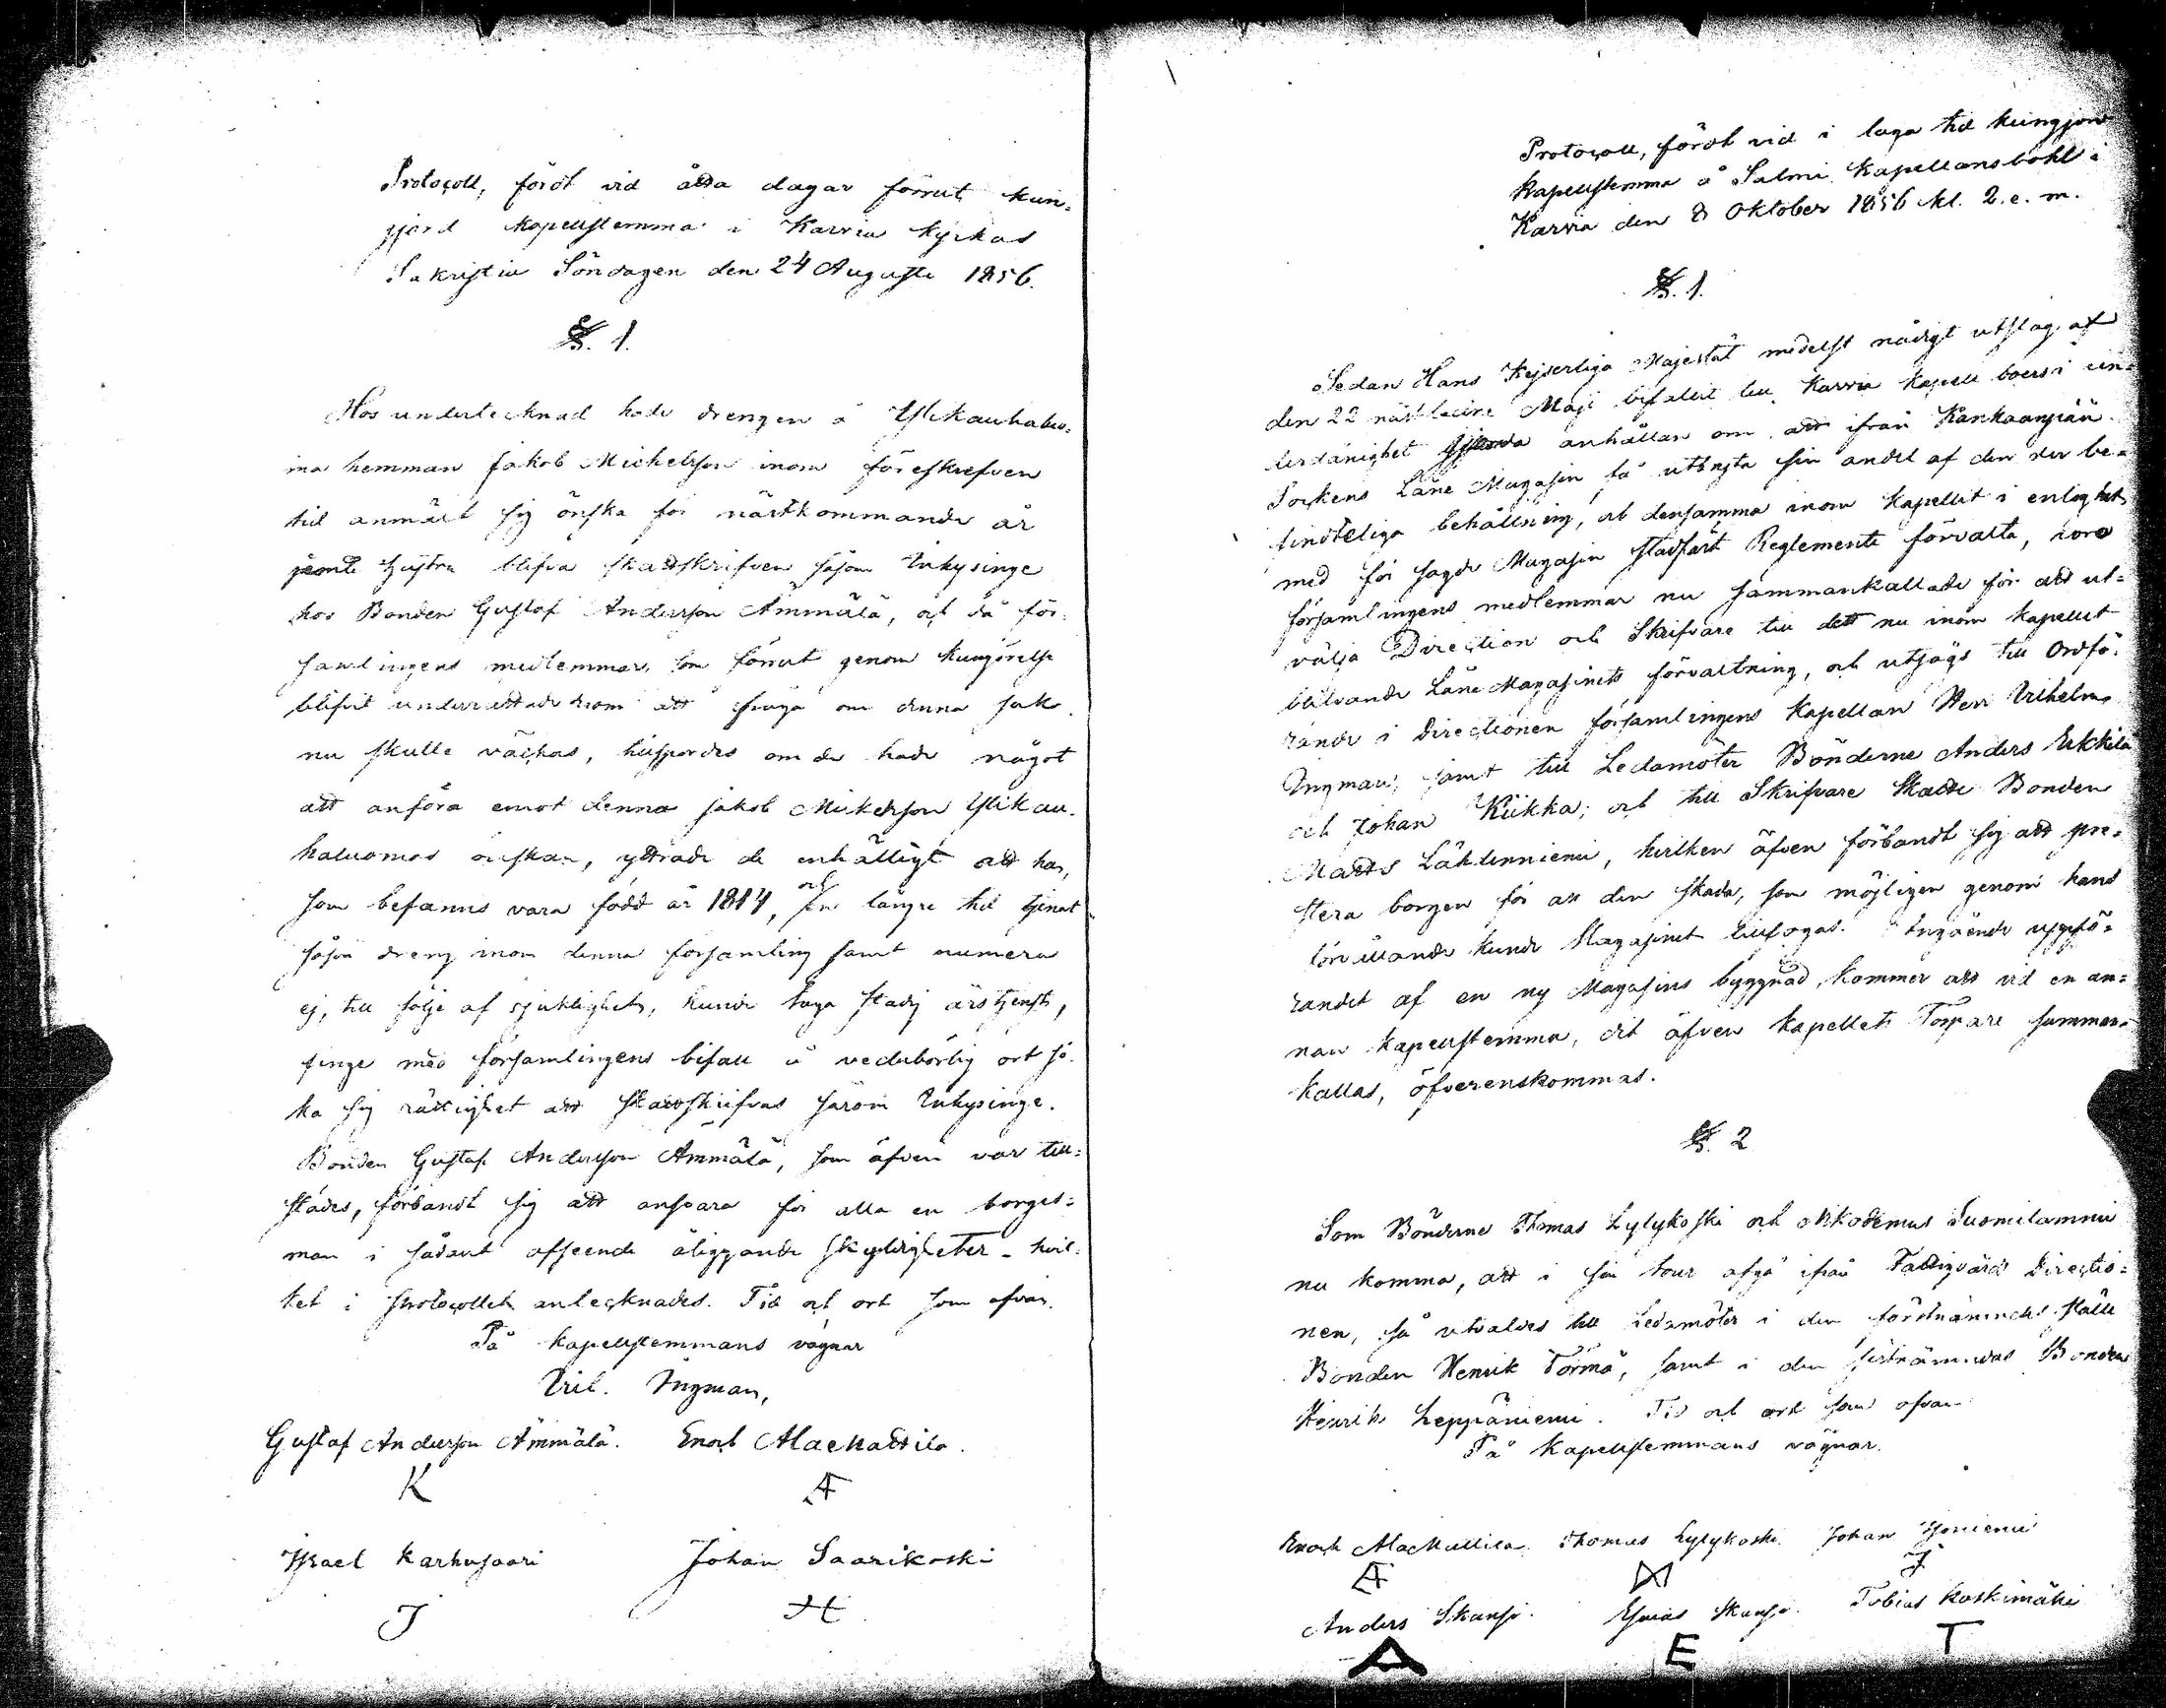 Protocoll, fördt vid åtta dagar förrut kun-
gjord kapellstemma i Karvia kyrkas
Sakristia Söndagen den 24 Augusti 1856.
§. 1.
Hos undertecknad hade drengen å Ylikauhaluo-
ma hemman Jakob Michelsson inom föreskrefven
tid anmält sig önska för nästkommande år
jemte hustru blifva skattskrifven såsom Inhysinge
hos Bonden Gustaf Andersson Ämmälä, och då för-
samlingens medlemmar, som förrut genom kungörelse
blifvit underrättade derom att fråga om denna sak
nu skulle väckas, tillspordes om de hade något
att anföra emot denna Jakob Mickelsson Ylikau-
haluomas önskan, yttrade de enhälligt att han,
som befanns vara född år 1814, och en längre tid tjenat
såsom dreng inom denna församling samt numera
ej, till följe af sjuklighet, kunde taga stadig årstjenst,
finge med församlingens bifall å vederbörlig ort sö-
ka sig rättighet att skattskrifvas såsom Inhysinge.
Bonden Gustaf Andersson Ämmälä, som äfven var till-
städes, förbandt sig att ansvara för alla en borges-
man i sådant afseende åliggande skyldigheter - hvil-
ket i protocollet antecknades. Tid och ort som ofvan.
På kapellstemmans vägnar
Vilh. Ingman,
Gustaf Andersson Ämmälä. Enoch Alamattila.
K A
Israel Karhusaari Johan Saarikoski
J H
Protocoll, fördt vid i laga tid kungjord
kapellstemma å Salmi kapellansbohl i
Karvia den 8 Oktober 1856 kl. 2 e. m.
§. 1.
Sedan Hans Kejserliga Majestät medelst nådigt utslag af
den 22 nästledne Maji bifallit till Karvia kapell boers i un-
derdånighet gjorda anhållan om att ifrån Kankaanpää
Sockens Låne Magasin få utbryta sin andel af den der be-
findteliga behållning, och densamma inom kapellet i enlighet
med för sagde Magasin stadfäst Reglemente förvalta, voro
församlingens medlemmar nu sammankallade för att ut-
välja Direction och Skrifvare till dett nu inom kapellet
blifvande Låne Magasinets förvaltning, och utsågs till Ordfö-
rande i Directionen församlingens Kapellan Herr Vilhelm
Ingman, samt till Ledamöter Bönderne Anders Erkkilä
och Johan Kiikka; och till Skrifvare Skatte Bonden
Matts Lähdenniemi, hvilken äfven förbandt sig att pre-
stera borgen för all den skada, som möjligen genom hans
förvållande kunde Magasinet tillfogas. Angående uppfö-
randet af en ny Magasins byggnad, kommer att vid en an-
nan kapellstemma, dit äfven kapellets Torpare samman-
kallas, öfverenskommas.
§. 2
Som Bönderne Thomas Lylykoski och Nikodemus Suomilammi
nu komma, att i sin tour afgå ifrån Fattigvårds Directio-
nen, så utvaldes till Ledamöter i den förstnämndes ställe
Bonden Henrik Törmä, samt i den sistnämndas Bonden
Henrik Leppäniemi. Tid och ort som ofvan
På kapellstemmans vägnar.
Enoch Alamattila. Thomas Lylykoski. Johan
A J
Anders Skansi. Esaias Skansi. Tobias Koskimäki
A E T